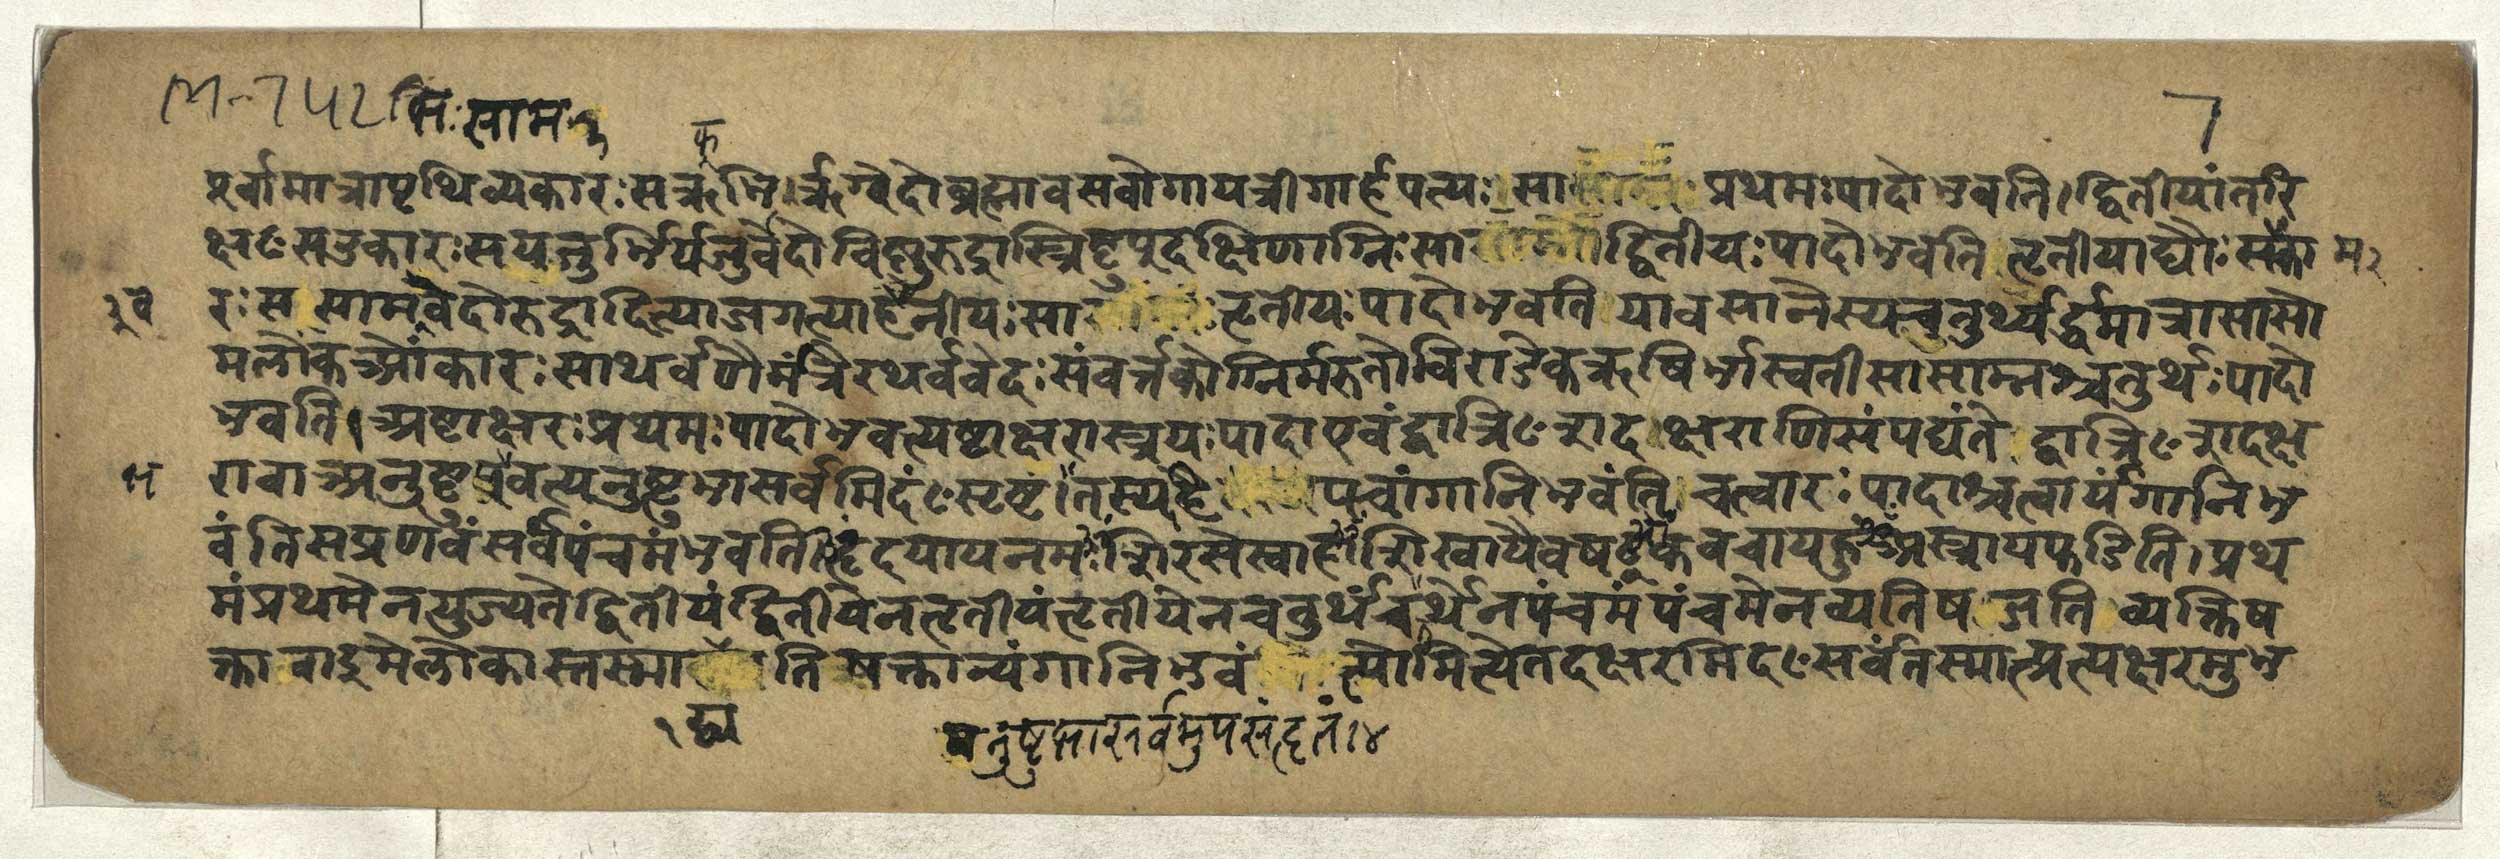 M-742 भिः सामर
7
क
पूर्वामात्रापृथिव्यकारः सऋग्भिर्ऋग्वेदोब्रह्मावसवोगायत्रीगार्हपत्यः सा प्रथमः पादोभवति । द्वितीयांतरि
क्षꣳसउकारः सयजुर्भिर्यजुर्वेदोविष्णुरुद्रास्त्रिष्टुप्दक्षिणाग्निः सा द्वितीयः पादोभवति तृतीयाद्यौः समका म२
२व रः ससामवेदोरुद्रादित्याजगत्याहनीयः सा तृतीयः पादोभवति यावसानेस्यचतुर्थ्यर्द्धमात्रासासो
मलोकओंकारः साथर्वणैर्मंत्रैरथर्ववेदः संवर्त्तकोग्निर्मरुतोविराडेकऋषिर्भास्वतीसासाम्नश्चतुर्थः पादो
भवति । अष्टाक्षरः प्रथमः पादोभवत्यष्टाक्षरास्त्रयः पादाएवंद्वात्रिꣳशदक्षराणिसंपद्यंते द्वात्रिꣳशदक्ष
भ रावाअनुष्टुप्भवत्यनुष्टुभासर्वमिदꣳसृष्टं तस्यहि पंचांगानिभवंति चत्वारः पादाश्चत्वार्यंगानिभ
वंतिसप्रणवंसर्वंपंचमंभवति हृदयायनमः शिरसेस्वाहा शिखायैवषट् कवचायहुं अस्त्रायफडिति । प्रथ
मंप्रथमेनयुज्यतेद्वितीयंद्वितीयेनतृतीयंतृतीयेनचतुर्थंचतुर्थेनपंचमंपंचमेनव्यतिषजति व्यतिष
क्तावाइमेलोकास्तस्मा तिषक्तान्यंगानिभवं त्योमित्येतदक्षरमिदꣳसर्वंतस्मात्प्रत्यक्षरमुभ
१द्व्य मनुष्टुभासर्वमुपसंहृतं । ४